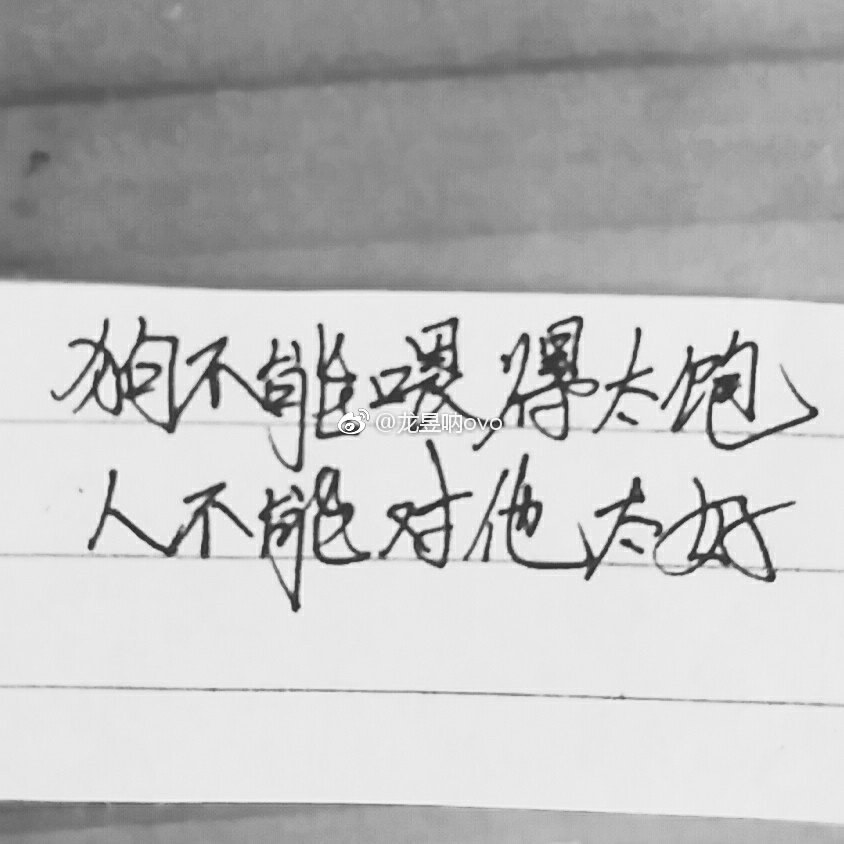 狗不能喂得太饱
@龙昱呐ovo
人不能对他太好